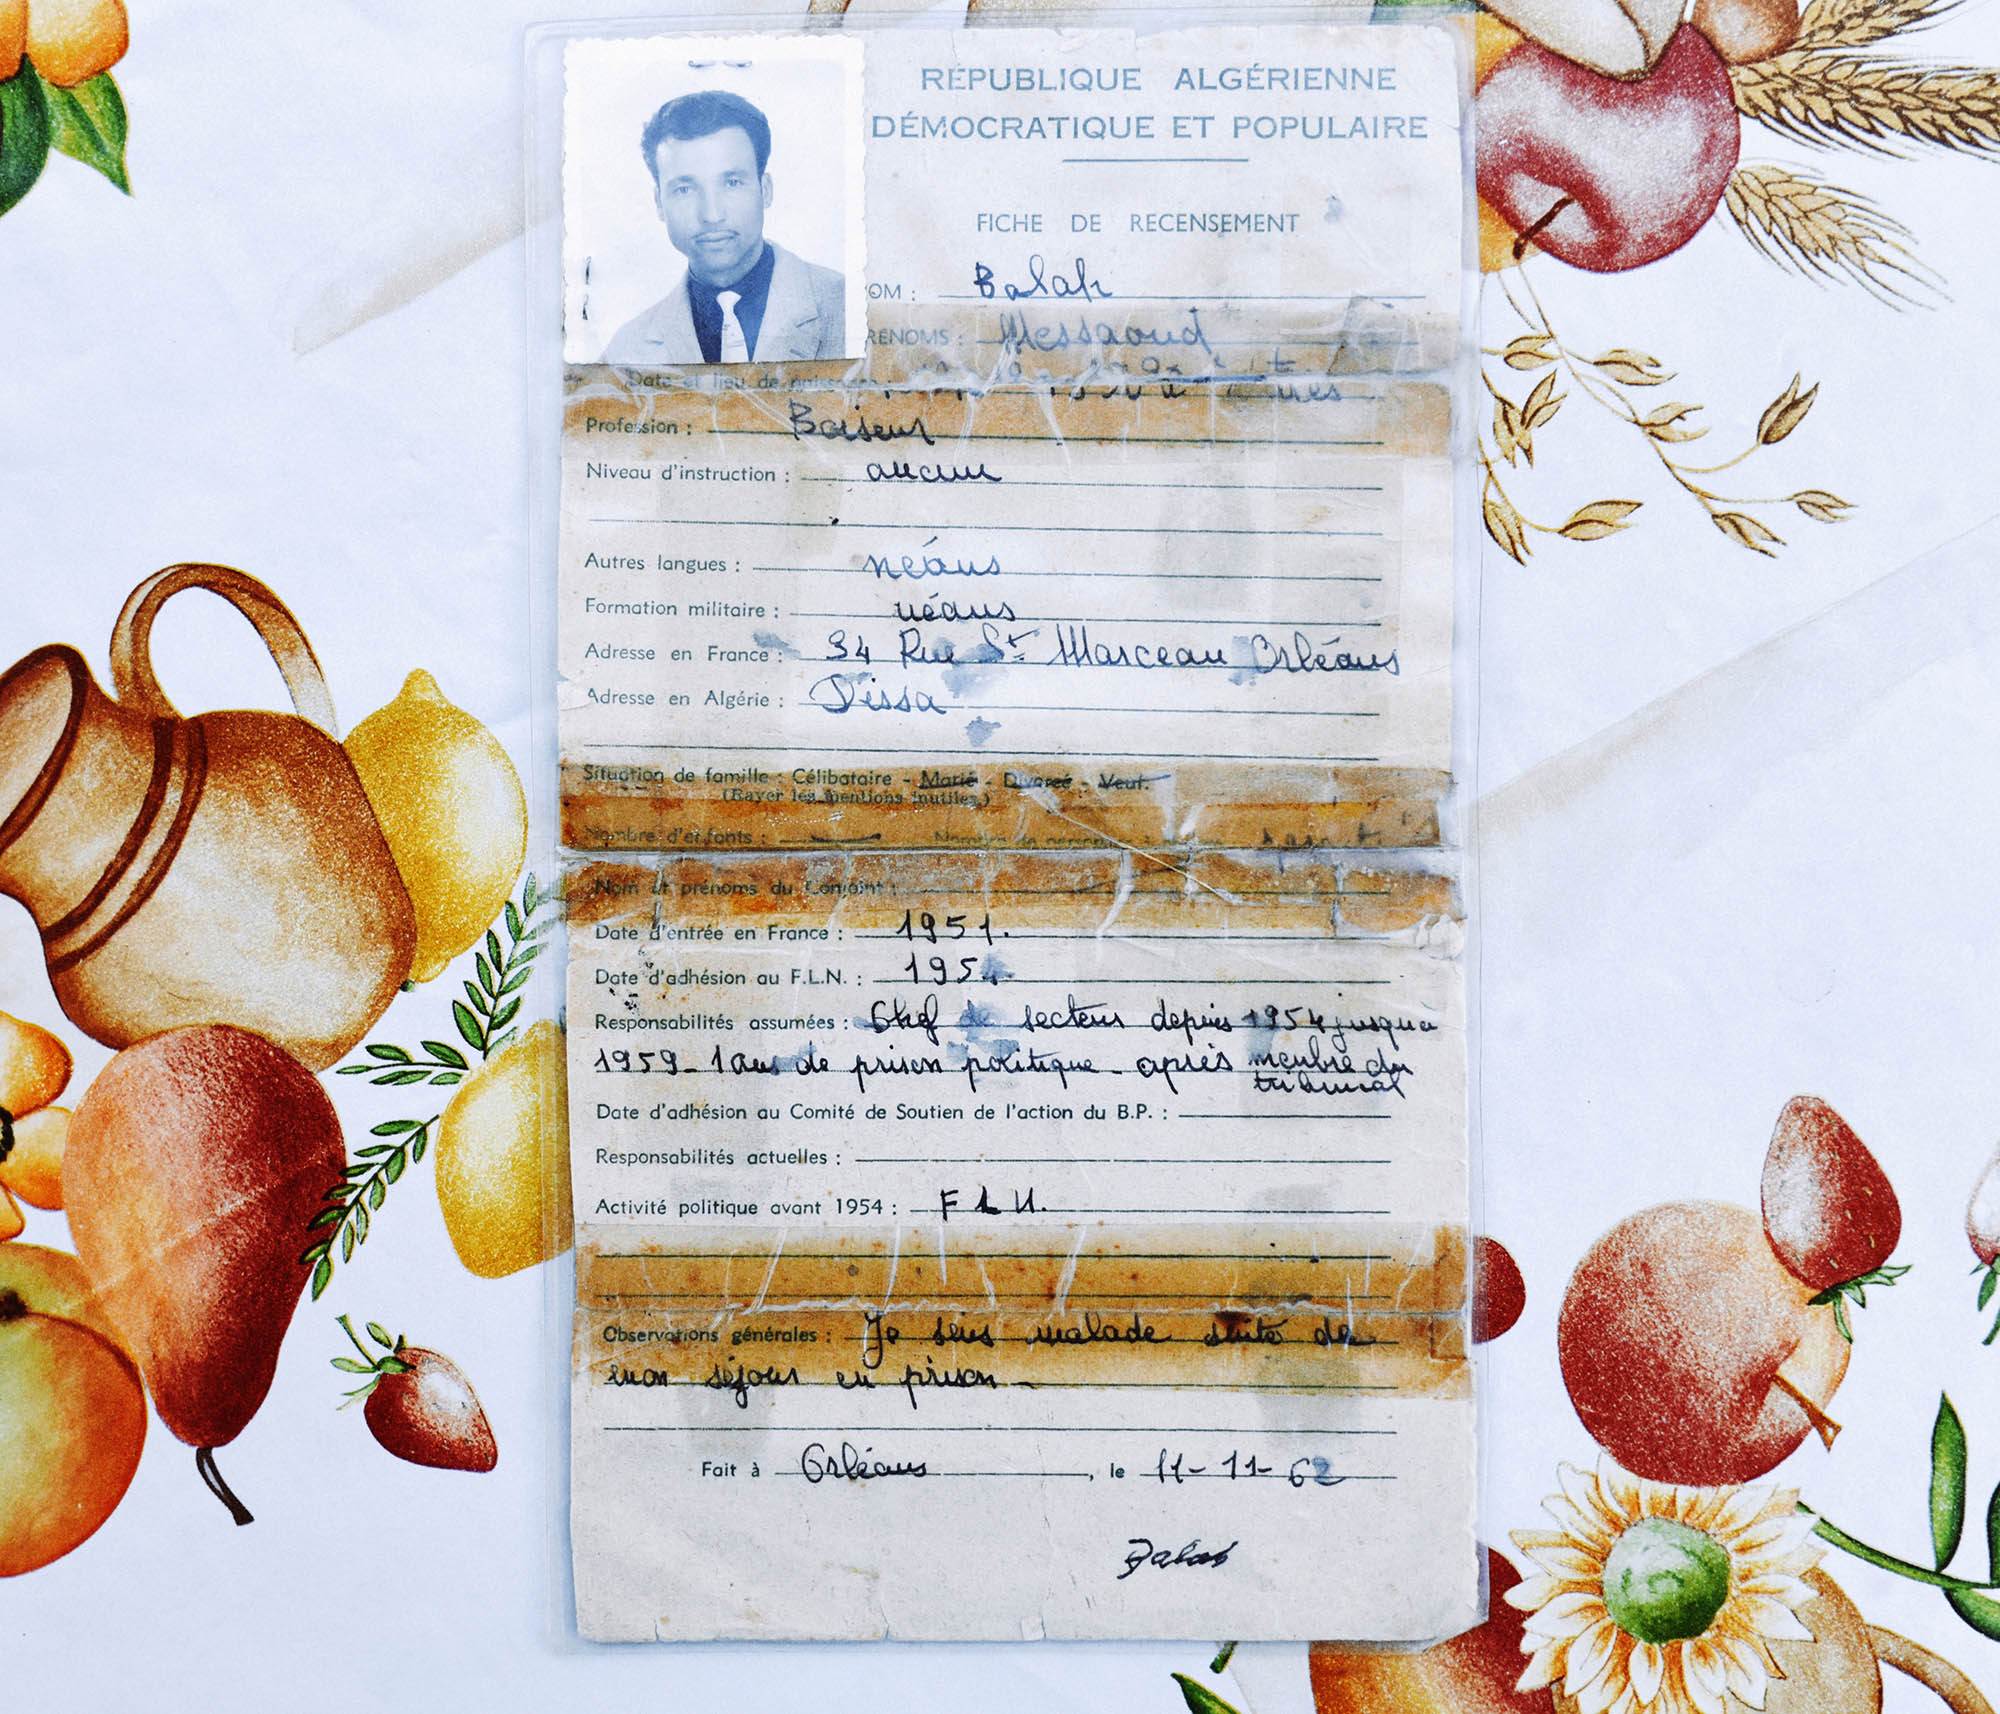 RÉPUBLIQUE ALGÉRIENNE
DÉMOCRATIQUE ET POPULAIRE
FICHE DE RECENSEMENT
OM : Balah
RENOMS : Messaoud
Date et lieu de naissance :
Profession : Boiseur
Niveau d'instruction : aucun
Autres langues : néaus
Formation militaire : néaus
Adresse en France : 34 Rue St Marceau Orléans
Adresse en Algérie : Dissa
Situation de famille : Célibataire - Marié - Divorcé - Veuf.
(Rayer les mentions inutiles)
Nombre d'enfants :
Nom et prénoms du Conjoint :
Date d'entrée en France : 1951.
Date d'adhésion au F.L.N. : 195
Responsabilités assumées : Chef de secteur depuis 1954 jusqu'a
1959 - 1 ans de prison politique - après membre du
tribunal
Date d'adhésion au Comité de Soutien de l'action du B.P. :
Responsabilités actuelles :
Activité politique avant 1954 : F L N.
Observations générales : Je suis malade suite de
mon séjour en prison -
Fait à Orléans, le 11-11-62
Balah